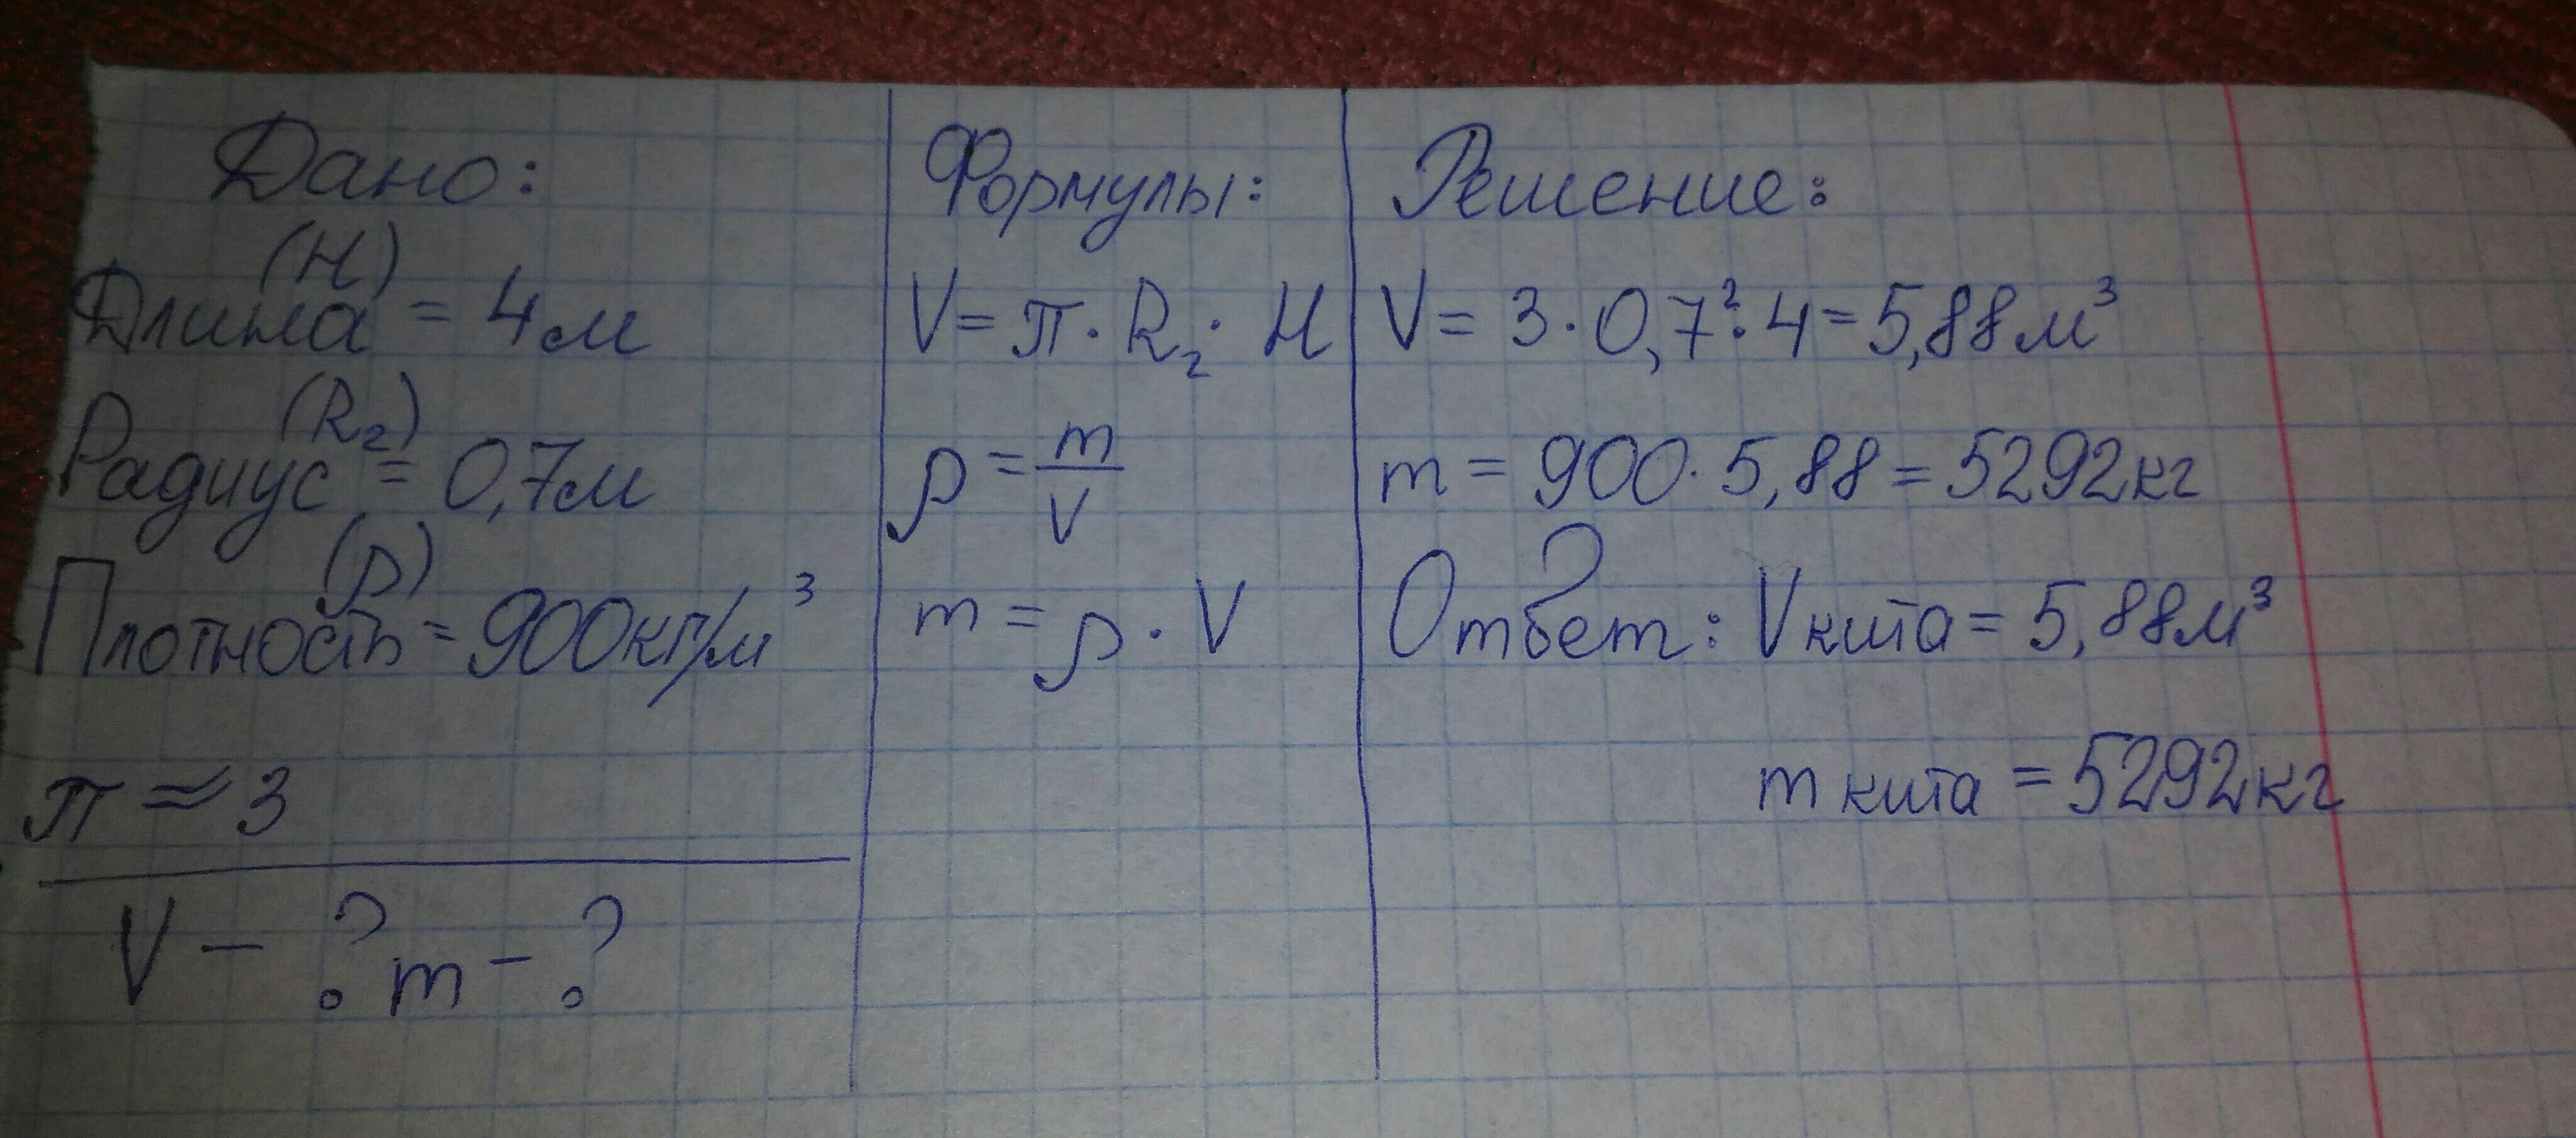 Дано:
(H)
Длина = 4м
(R₂)
Радиус = 0,7м
(ρ)
Плотность = 900кг/м³
π ≈ 3
V - ? m - ?
Формулы:
V = π · R₂ · H
ρ = m/V
m = ρ · V
Решение:
V = 3 · 0,7² · 4 = 5,88м³
m = 900 · 5,88 = 5292кг
Ответ: Vкита = 5,88м³
mкита = 5292кг